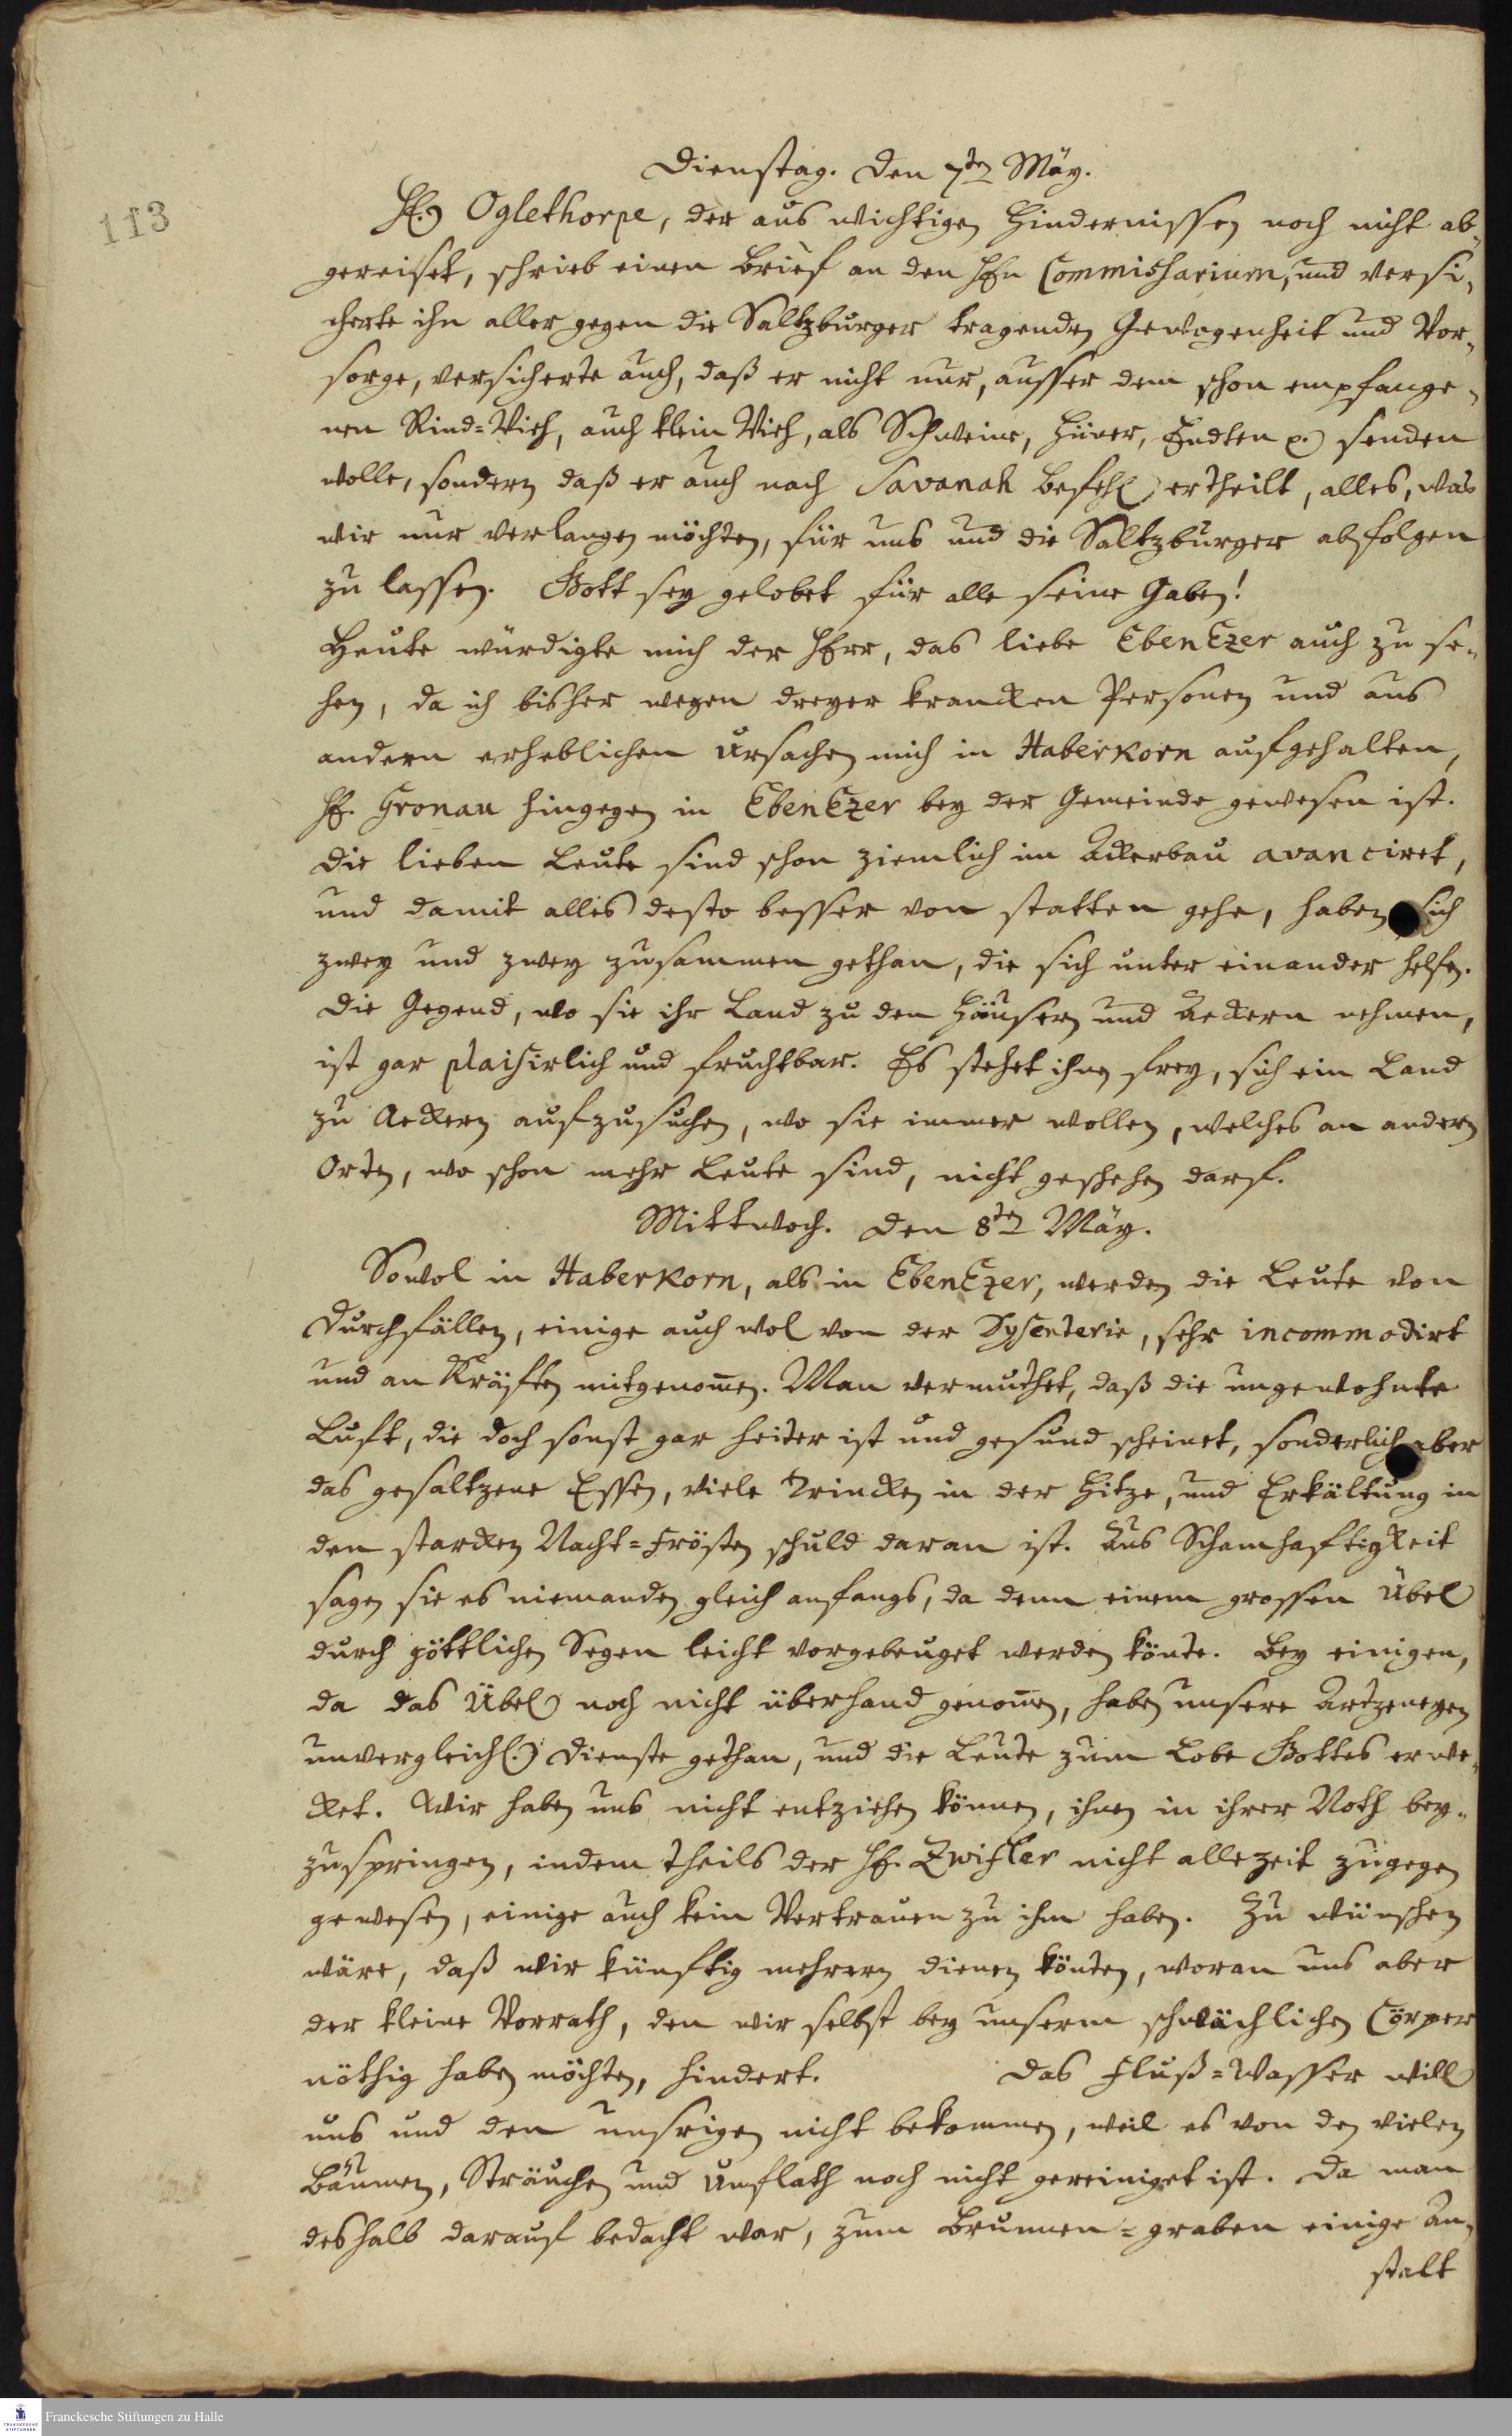 113
Dienstag. den 7ten Mäy.
H. Oglethorpe, der aus wichtigen Hindernissen noch nicht ab-
gereiset, schrieb einen Brief an den HEn Commissarium, und versi-
cherte ihn aller gegen die Saltzburger tragenden Gewogenheit und Vor-
sorge, versicherte auch, daß er nicht nur, ausser dem schon empfange-
nen Rind-Vieh, auch klein Vieh, als Schweine, Hüner, Endten p. senden
wolle, sondern daß er auch nach Savanah Befehl ertheilt, alles, was
wir nur verlangen möchten, für uns und die Saltzburger abfolgen
zu lassen. Gott sey gelobet für alle seine Gaben!
Heute würdigte mich der HErr, das liebe EbenEzer auch zu se-
hen, da ich bisher wegen dreyer krancken Personen und aus
andern erheblichen Ursachen mich in Haberkorn aufgehalten,
H. Gronau hingegen in EbenEzer bey der Gemeinde gewesen ist.
Die lieben Leute sind schon ziemlich im Ackerbau avanciret,
und damit alles desto besser von statten gehe, haben sich
zwey und zwey zusammen gethan, die sich unter einander helfen.
Die Gegend, wo sie ihr Land zu den Häusern und Aeckern nehmen,
ist gar plaisirlich und fruchtbar. Es stehet ihnen frey, sich ein Land
zu Aeckern aufzusuchen, wo sie immer wollen, welches an andern
Orten, wo schon mehr Leute sind, nicht geschehen darf.
Mittwoch. den 8ten Mäy.
Sowol in Haberkorn, als in EbenEzer, werden die Leute von
Durchfällen, einige auch wol von der Dysenterie, sehr incommodirt
und an Kräften mitgenom̅en. Man vermuthet, daß die ungewohnte
Luft, die doch sonst gar heiter ist und gesund scheinet, sonderlich aber
das gesaltzene Essen, viele Trincken in der Hitze, und Erkältung in
den starcken Nacht-Frösten schuld daran ist. Aus Schamhaftigkeit
sagen sie es niemanden gleich anfangs, da denn einem grossen Übel
durch göttlichen Segen leicht vorgebeuget werden könte. Bey einigen,
da das Übel noch nicht überhand genom̅en, haben unsere Artzeneyen
unvergleichl. Dienste gethan, und die Leute zum Lobe Gottes erwe-
cket. Wir haben uns nicht entziehen können, ihnen in ihrer Noth bey-
zuspringen, indem theils der H. Zwifler nicht allezeit zugegen
gewesen, einige auch kein Vertrauen zu ihm haben. Zu wünschen
wäre, daß wir künftig mehrern dienen könten, woran uns aber
der kleine Vorrath, den wir selbst bey unserm schwächlichen Cörper
nöthig haben möchten, hindert. Das Fluß-Wasser will
uns und den unsrigen nicht bekommen, weil es von den vielen
Bäumen, Sträuchen und Unflath noch nicht gereiniget ist. Da man
deshalb darauf bedacht war, zum Brunnen-graben einige An-
stalt
FRANCKESCHE STIFTUNGEN
Franckesche Stiftungen zu Halle